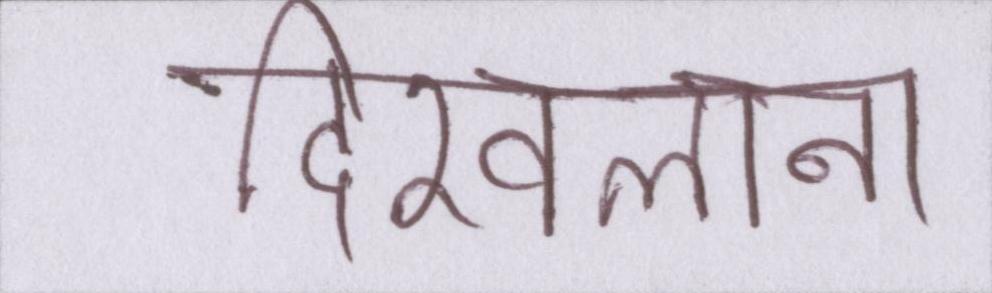 दिखलाना